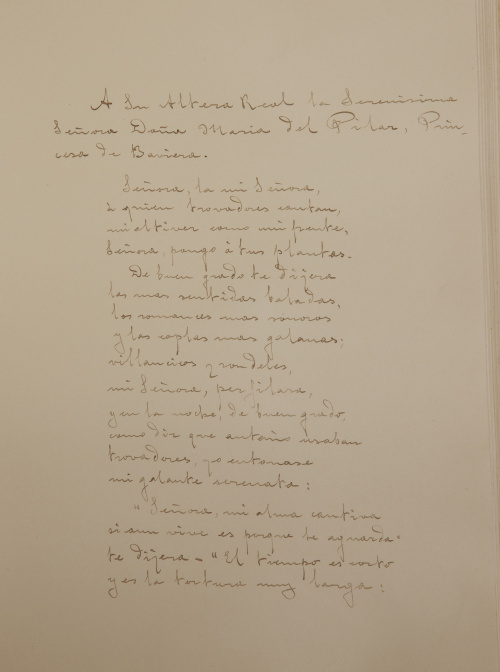 A Su Alteza Real la Serenisima
Señora Doña Maria del Pilar, Prin-
cesa de Baviera.
Señora, la mi Señora,
á quien trovadores cantan,
mi altivez como mi frente,
Señora, pongo á tus plantas.
De buen grado te dijera
las mas sentidas baladas,
los romances mas sonoros
y las coplas mas galanas;
villancicos y rondeles,
mi Señora, perfilara,
y en la noche, de buen grado,
como diz que antaño usaban
trovadores, yo entonase
mi galante serenata:
"Señora, mi alma cautiva
si aun vive es porque te aguarda"
te dijera - "El tiempo es corto
y es la tortura muy larga: